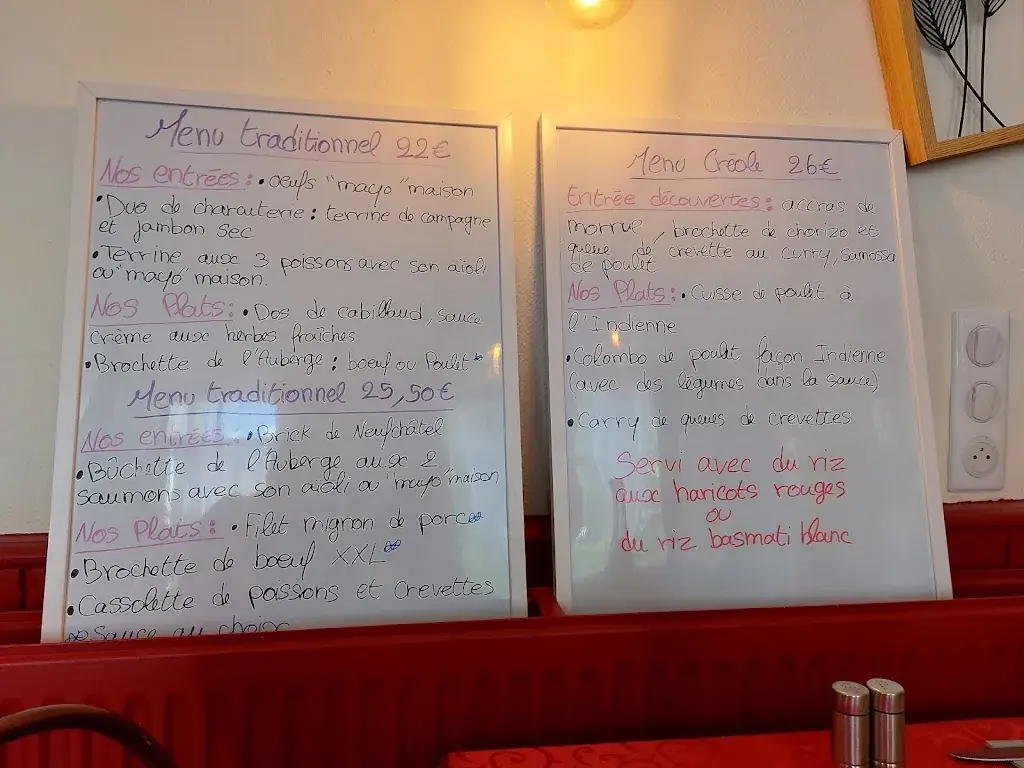 Menu traditionnel 22€
Nos entrées : • oeufs "mayo" maison
• Duo de charcuterie : terrine de campagne
et jambon sec
• Terrine aux 3 poissons avec son aïoli
ou "mayo" maison.
Nos Plats : • Dos de cabillaud, sauce
crème aux herbes fraîches
• Brochette de l'Auberge : boeuf ou Poulet*
Menu traditionnel 25,50€
Nos entrées : • Brick de Neufchâtel
• Bûchette de l'Auberge aux 2
saumons avec son aïoli ou "mayo" maison
Nos Plats : • Filet mignon de porc*
• Brochette de boeuf XXL*
• Cassolette de poissons et crevettes
* Sauce au choix
Menu Créole 26€
Entrée découvertes : accras de
morrue, brochette de chorizo et
queue de crevette au curry, samossa
de poulet
Nos Plats : • Cuisse de poulet à
l'Indienne
• Colombo de poulet façon Indienne
(avec des légumes dans la sauce)
• Carry de queues de crevettes
Servi avec du riz
aux haricots rouges
ou
du riz basmati blanc